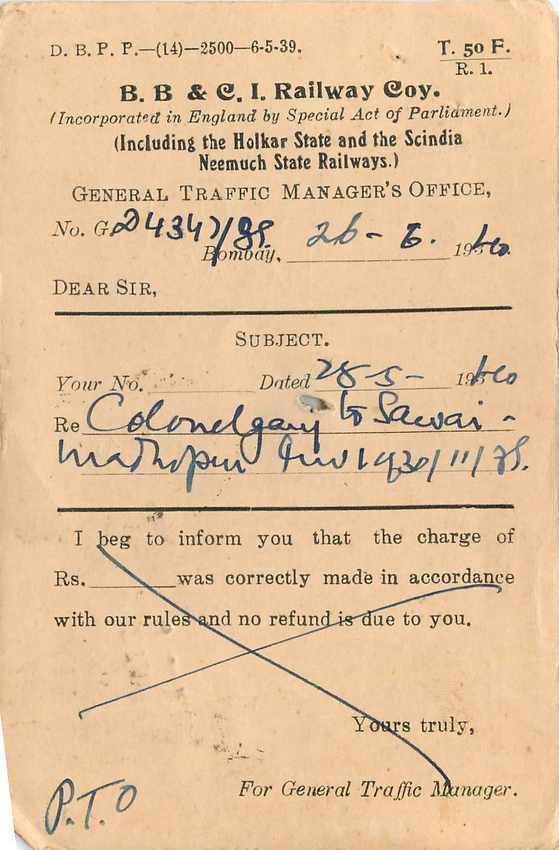 D. B. P. P.—(14)—2500—6-5-39.
T. 50 F.
R. 1.
B. B & C. I. Railway Coy.
(Incorporated in England by Special Act of Parliament.)
(Including the Holkar State and the Scindia
Neemuch State Railways.)
GENERAL TRAFFIC MANAGER'S OFFICE,
No. G.
Bombay, 26-6. 1940.
DEAR SIR,
SUBJECT.
Your No. Dated 28-5- 1940
Re Colonelganj to Sawai-
madhopur Inv
I beg to inform you that the charge of
Rs. was correctly made in accordance
with our rules and no refund is due to you.
Yours truly,
For General Traffic Manager.
P.T.O